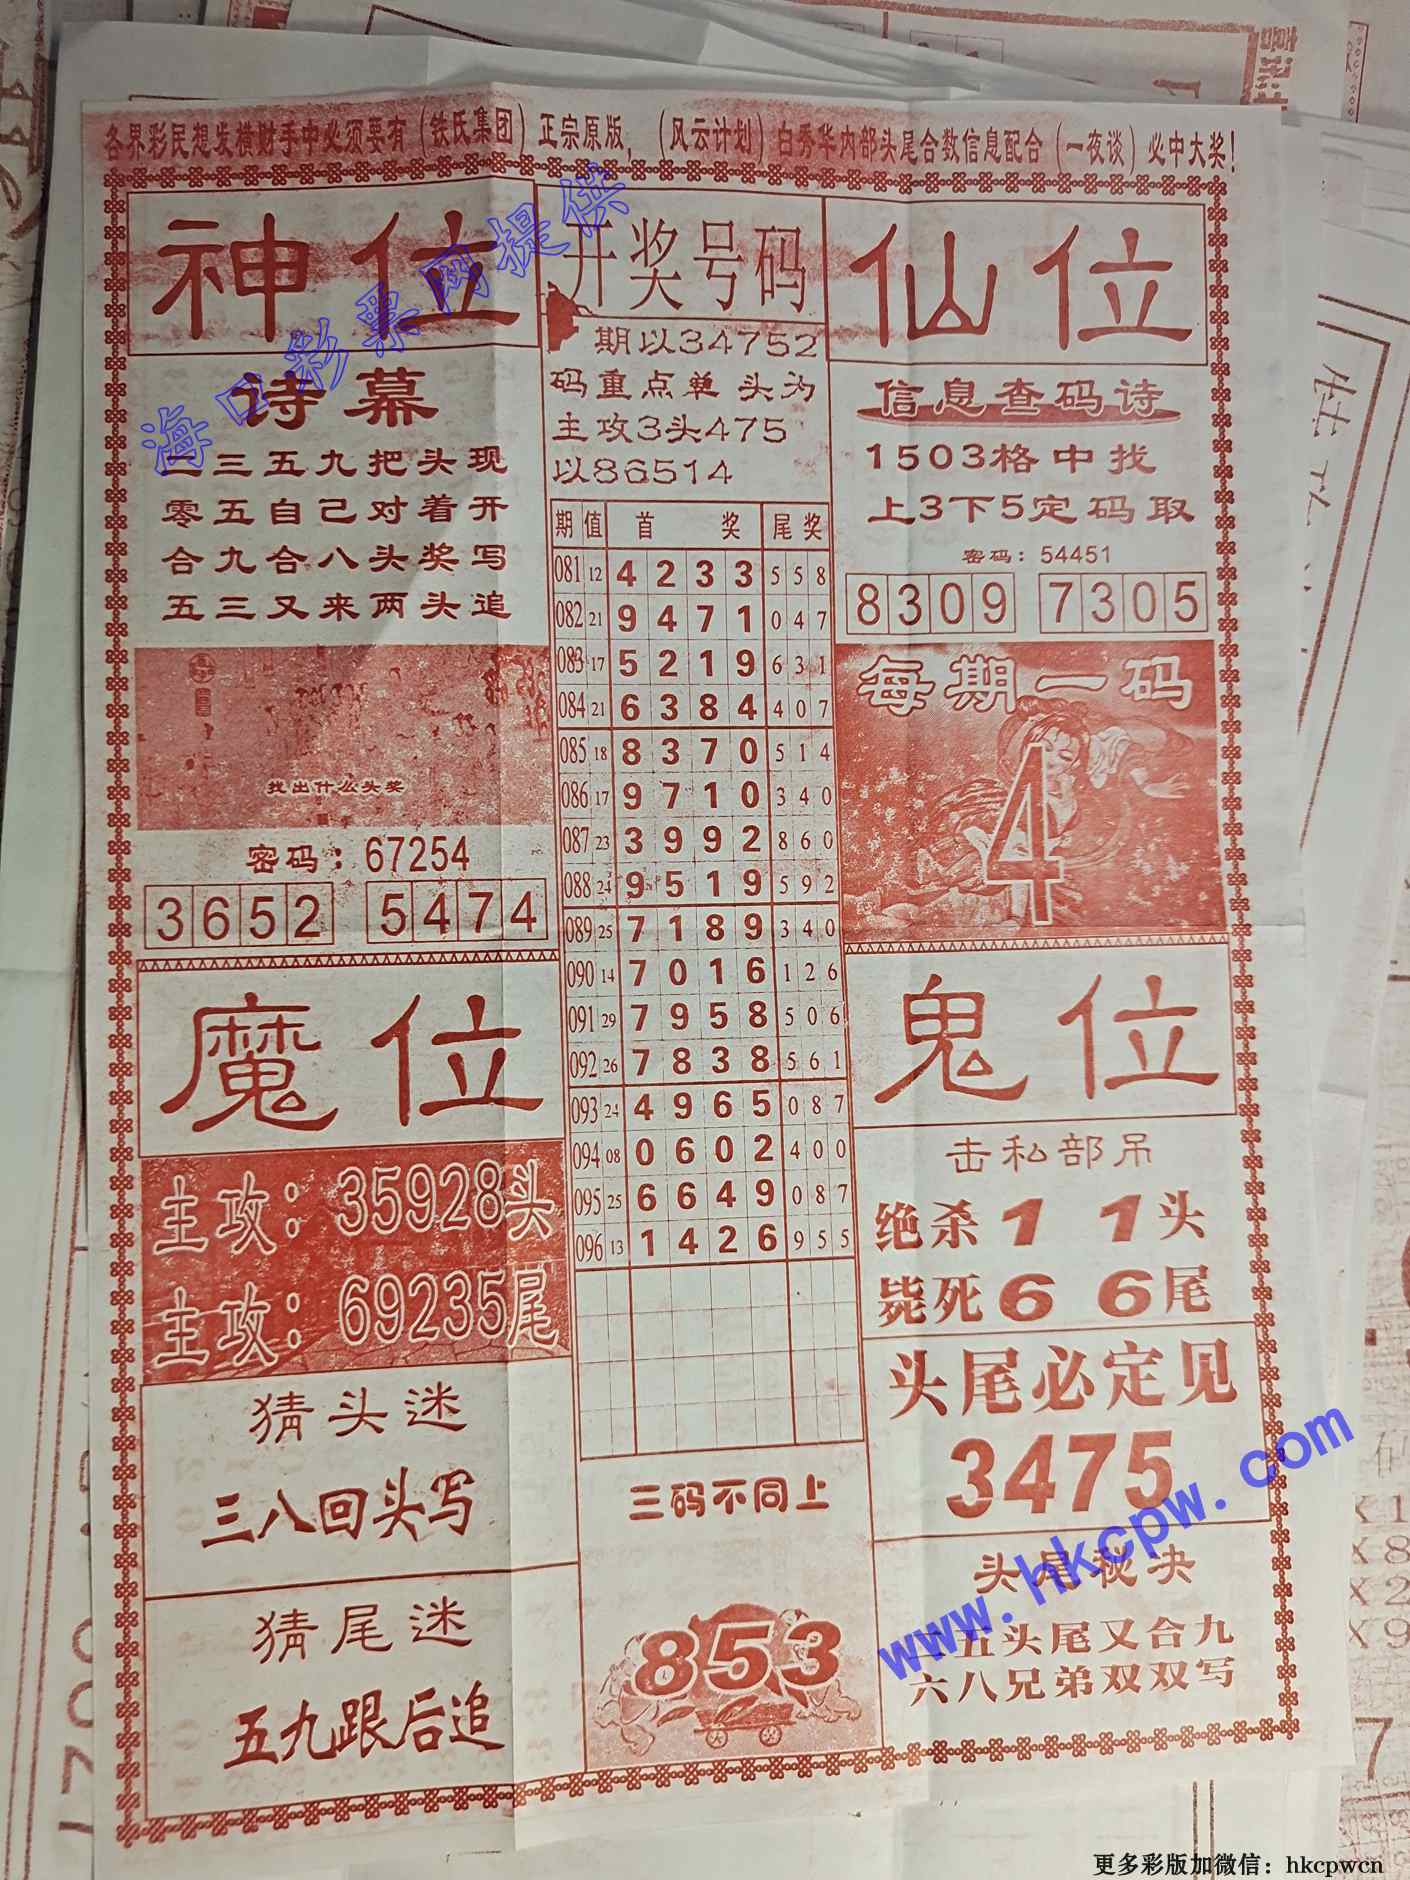 各界彩民想发横财手中必须要有(铁氏集团)正宗原版,(风云计划)白秀华内部头尾合数信息配合(一夜谈)必中大奖!
神位
诗幕
二三五九把头现
零五自己对着开
合九合八头奖写
五三又来两头追
找出什么头奖
密码:67254
3652 5474
开奖号码
期以34752
码重点单 头为
主攻3头475
以86514
期 值 首 奖 尾奖
081 12 4 2 3 3 5 5 8
082 21 9 4 7 1 0 4 7
083 17 5 2 1 9 6 3 1
084 21 6 3 8 4 4 0 7
085 18 8 3 7 0 5 1 4
086 17 9 7 1 0 3 4 0
087 23 3 9 9 2 8 6 0
088 24 9 5 1 9 5 9 2
089 25 7 1 8 9 3 4 0
090 14 7 0 1 6 1 2 6
091 29 7 9 5 8 5 0 6
092 26 7 8 3 8 5 6 1
093 24 4 9 6 5 0 8 7
094 08 0 6 0 2 4 0 0
095 25 6 6 4 9 0 8 7
096 13 1 4 2 6 9 5 5
三码不同上
853
仙位
信息查码诗
1503格中找
上3下5定码取
密码:54451
8309 7305
每期一码
4
魔位
主攻:35928头
主攻:69235尾
猜头迷
三八回头写
猜尾迷
五九跟后追
鬼位
击私部吊
绝杀1 1头
毙死6 6尾
头尾必定见
3475
头尾秘决
二五头尾又合九
六八兄弟双双写
海口彩票网提供
www.hkcpw.com
更多彩版加微信:hkcpwcn